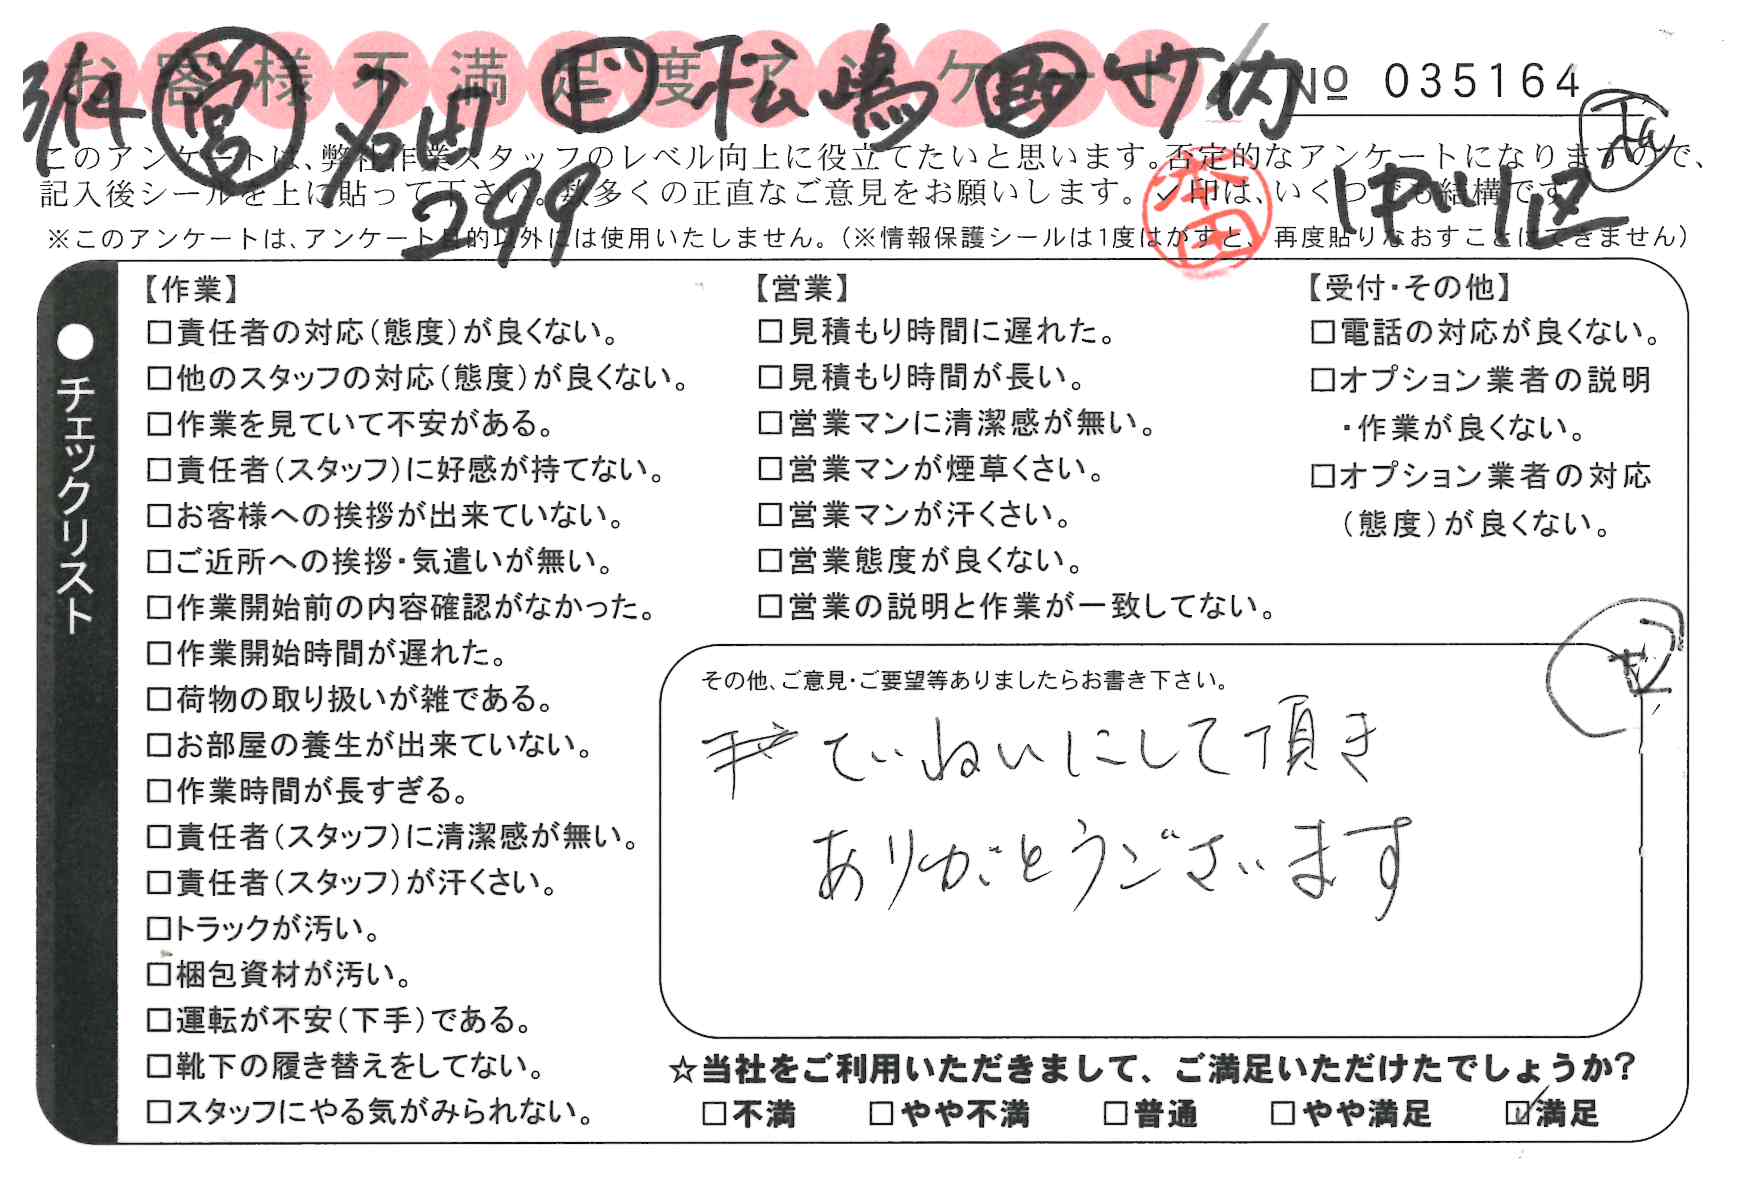 お客様不満足度アンケート
No 035164
3/14 営 名田 ド 松嶋 助 竹内
299
中川区
本田
このアンケートは、弊社作業スタッフのレベル向上に役立てたいと思います。否定的なアンケートになりますので、
記入後シールを上に貼って下さい。数多くの正直なご意見をお願いします。✓印は、いくつでも結構です。
※このアンケートは、アンケート目的以外には使用いたしません。(※情報保護シールは1度はがすと、再度貼りなおすことはできません)
●チェックリスト
【作業】
□責任者の対応(態度)が良くない。
□他のスタッフの対応(態度)が良くない。
□作業を見ていて不安がある。
□責任者(スタッフ)に好感が持てない。
□お客様への挨拶が出来ていない。
□ご近所への挨拶・気遣いが無い。
□作業開始前の内容確認がなかった。
□作業開始時間が遅れた。
□荷物の取り扱いが雑である。
□お部屋の養生が出来ていない。
□作業時間が長すぎる。
□責任者(スタッフ)に清潔感が無い。
□責任者(スタッフ)が汗くさい。
□トラックが汚い。
□梱包資材が汚い。
□運転が不安(下手)である。
□靴下の履き替えをしてない。
□スタッフにやる気がみられない。
【営業】
□見積もり時間に遅れた。
□見積もり時間が長い。
□営業マンに清潔感が無い。
□営業マンが煙草くさい。
□営業マンが汗くさい。
□営業態度が良くない。
□営業の説明と作業が一致してない。
【受付・その他】
□電話の対応が良くない。
□オプション業者の説明
・作業が良くない。
□オプション業者の対応
(態度)が良くない。
その他、ご意見・ご要望等ありましたらお書き下さい。
ていねいにして頂き
ありがとうございます
☆当社をご利用いただきまして、ご満足いただけたでしょうか?
□不満 □やや不満 □普通 □やや満足 ☑満足